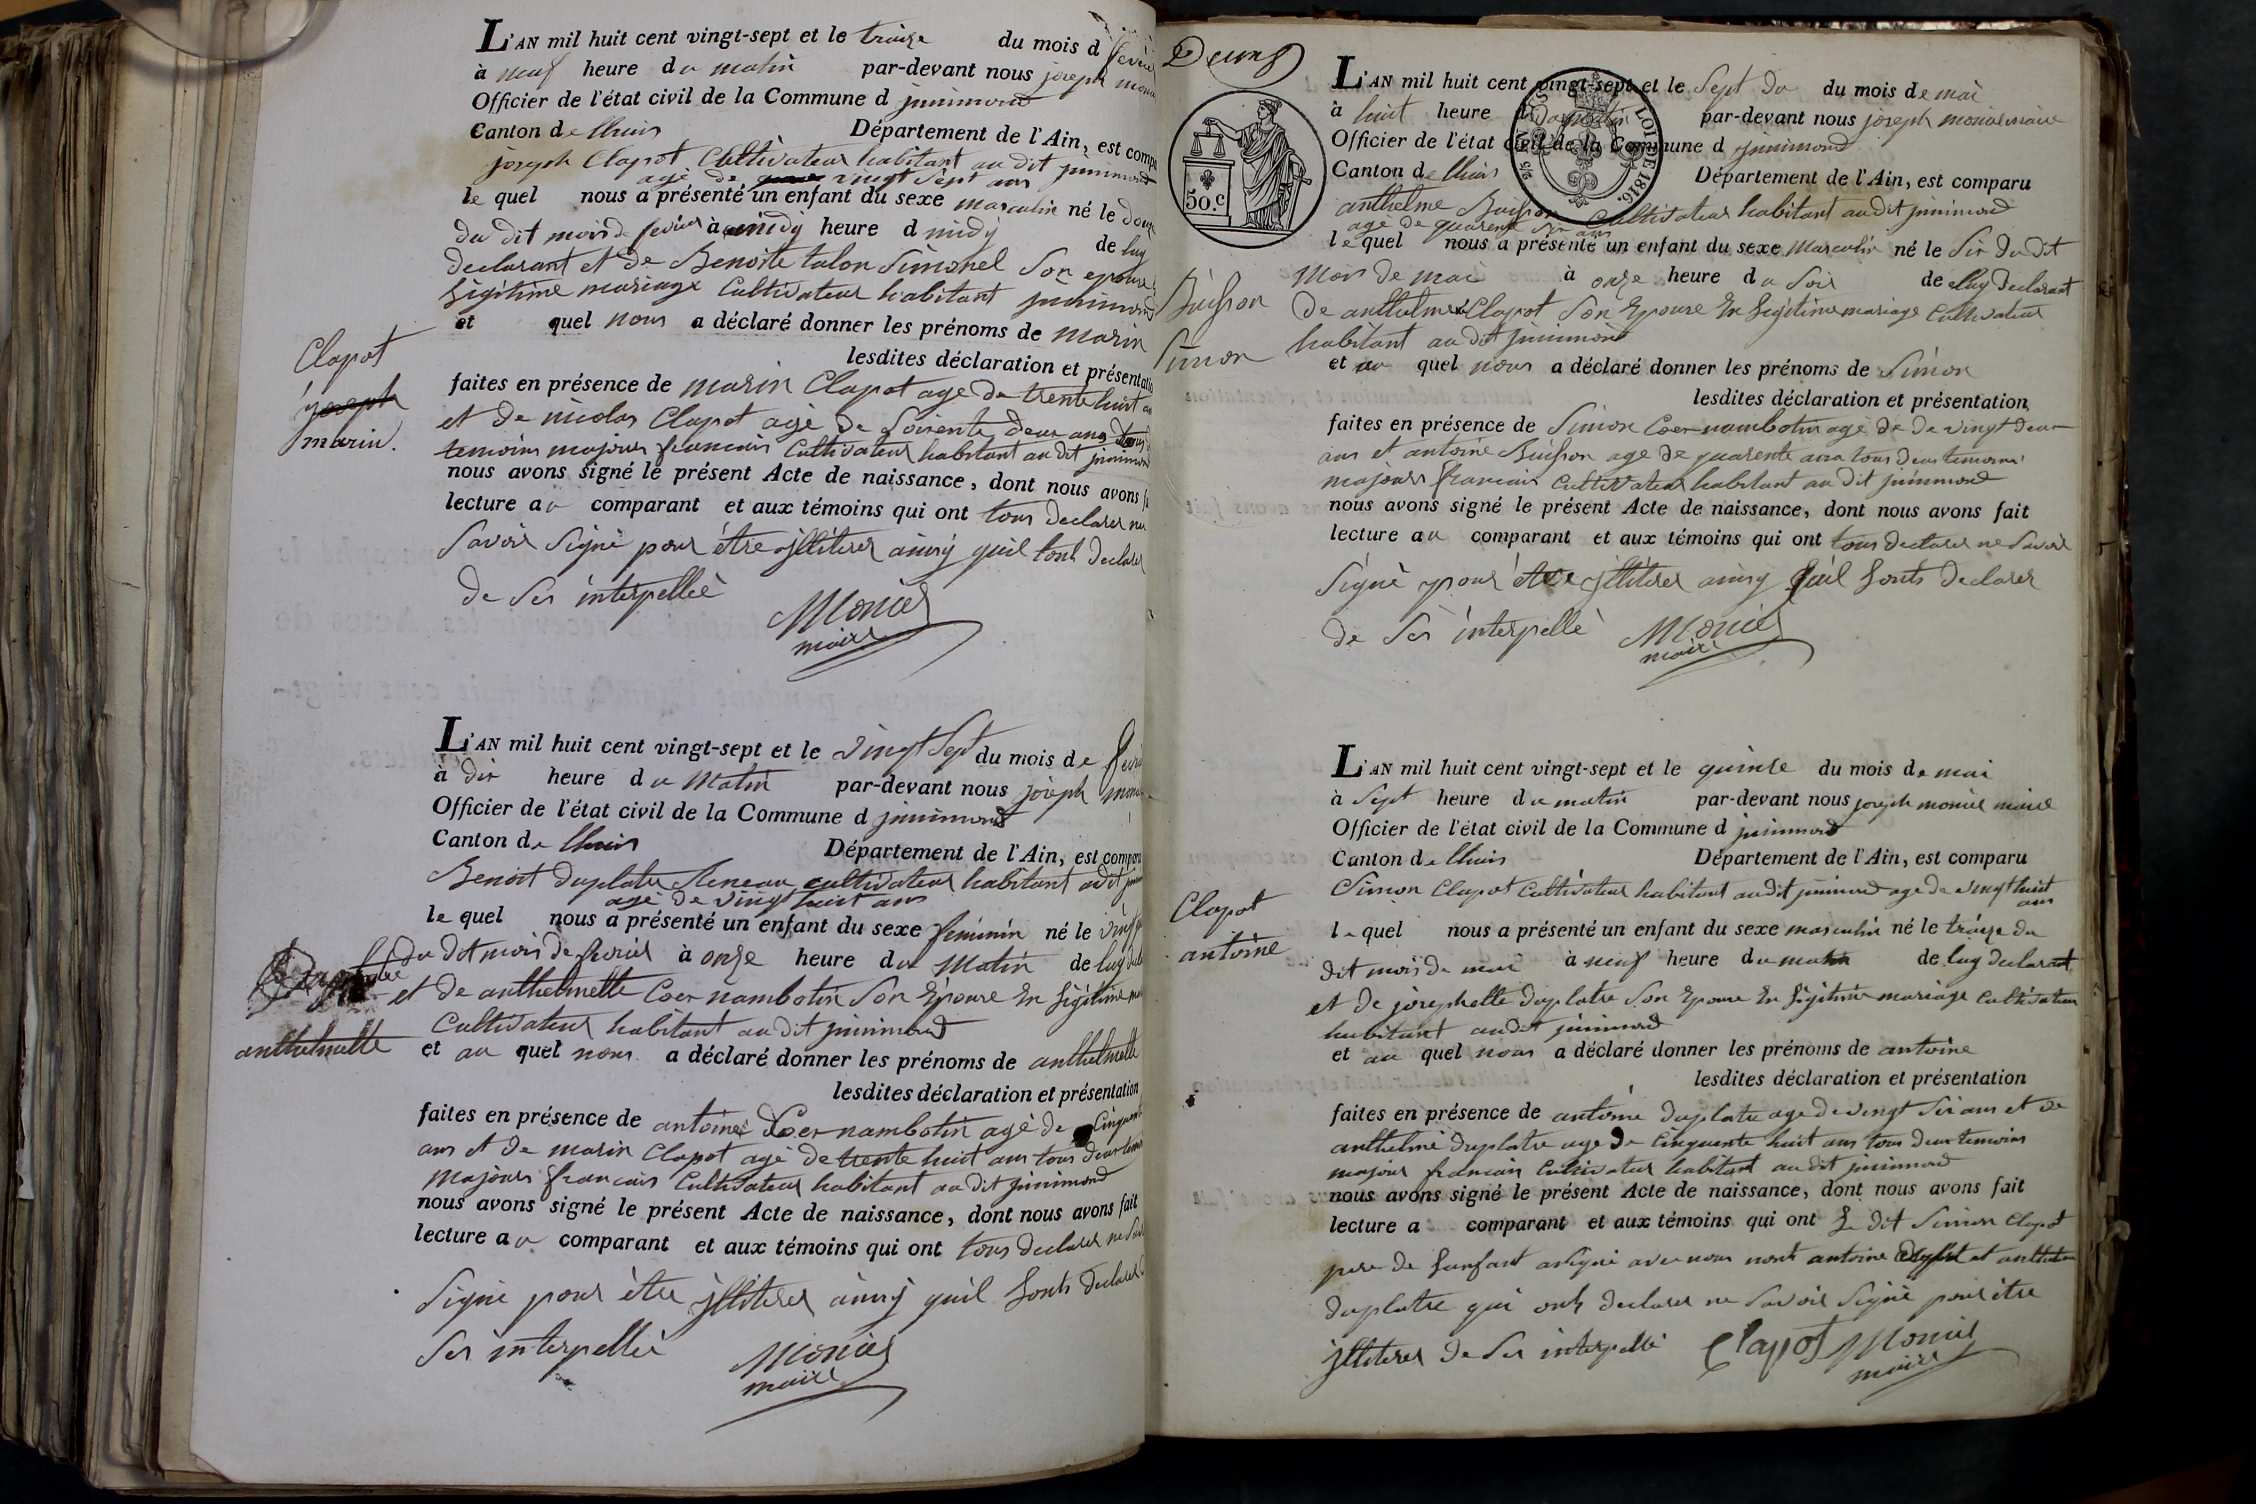 L'AN mil huit cent vingt-sept et le treize du mois d fevrier
à neuf heure du matin par-devant nous joseph
Officier de l'état civil de la Commune d jnnimond
Canton de lhuis Département de l'Ain, est comp
joseph Clapot Cultivateur habitant au dit jnnimond
agé de vingt sept ans
le quel nous a présenté un enfant du sexe masculin né le douze
du dit mois de fevrier à midy heure d midy de luy
declarant et de Benoite talon Simonel Son epouse
legitime mariage Cultivateur habitant jnnimond
et quel nous a déclaré donner les prénoms de marin
lesdites déclaration et présentati
faites en présence de marin Clapot age de trente huit
et de nicolas Clapot agé de Soisente deux ans
temoins majeurs francais Cultivateur habitant au dit jnnimond
nous avons signé le présent Acte de naissance, dont nous avons f
lecture au comparant et aux témoins qui ont tous declarer ne
Savoir Signé pour être jlliterer ainsy quil lonts declarer
de Ses interpellée
Monier
maire
Clapot
joseph
marin.
L'AN mil huit cent vingt-sept et le vingt Sept du mois de
à dix heure du Matin par-devant nous joseph
Officier de l'état civil de la Commune d jnnimond
Canton de lhuis Département de l'Ain, est compar
Benoit duplatre cultivateur habitant audit
agé de vingt huit ans
le quel nous a présenté un enfant du sexe feminin né le
du dit mois de fevrier à onze heure du Matin de luy
et de anthelmette Coer nambotin Son Epouse En Legitime
Cultivateur habitant au dit jnnimond
et au quel nous a déclaré donner les prénoms de anthelmette
lesdites déclaration et présentation
faites en présence de antoine Coer nambotin agé de Cinquante
ans et de marin Clapot agé de trente huit ans tous deux
majeurs francais Cultivateur habitant au dit jnnimond
nous avons signé le présent Acte de naissance, dont nous avons fait
lecture au comparant et aux témoins qui ont tous declarer ne
Signé pour être jlliterer ainsy quil Lonts declarer
Ses interpellée
Monier
maire
anthelmette
Deux
50.c
LOI DE 1816.
L'AN mil huit cent vingt-sept et le Sept du du mois de mai
à huit heure du matin par-devant nous joseph monier maire
Officier de l'état civil de la Commune d jnnimond
Canton de lhuis Département de l'Ain, est comparu
anthelme Buisson Cultivateur habitant au dit jnnimond
agé de quarente six ans
le quel nous a présenté un enfant du sexe masculin né le Six du dit
Mois de mai à onze heure du Soir de luy declarant
de anthelme Clapot Son Epouse En Legitime mariage Cultivateur
habitant au dit jnnimond
et au quel nous a déclaré donner les prénoms de Simon
lesdites déclaration et présentation
faites en présence de Simon Coer nambotin agé de de vingt deux
ans et antoine Buisson age de quarente ans tous deux temoins
majeurs francais Cultivateur habitant au dit jnnimond
nous avons signé le présent Acte de naissance, dont nous avons fait
lecture au comparant et aux témoins qui ont tous declarer ne Savoir
Signé pour être jlliterer ainsy quil Lonts declarer
de Ses interpellé
Monier
maire
Buisson
Simon
L'AN mil huit cent vingt-sept et le quinse du mois de mai
à Sept heure du matin par-devant nous joseph monier maire
Officier de l'état civil de la Commune d jnnimond
Canton de lhuis Département de l'Ain, est comparu
Simon Clapot Cultivateur habitant audit jnnimond age de vingt huit
ans
le quel nous a présenté un enfant du sexe masculin né le treize du
dit mois de mai à neuf heure du matin de luy declarant
et de josephette duplatre Son Epouse En Legitime mariage Cultivateur
habitant audit jnnimond
et au quel nous a déclaré donner les prénoms de antoine
lesdites déclaration et présentation
faites en présence de antoine duplatre age de vingt Six ans et de
anthelme duplatre age de Cinquante huit ans tous deux temoins
majeur francais Cultivateur habitant au dit jnnimond
nous avons signé le présent Acte de naissance, dont nous avons fait
lecture a comparant et aux témoins qui ont Le dit Simon Clapot
pere de Lenfant asigné avec nous nonts antoine et anthelme
duplatre qui onts declarer ne Savoir Signé pour être
jlliterer de Ses interpellé Clapot Monier
maire
Clapot
antoine